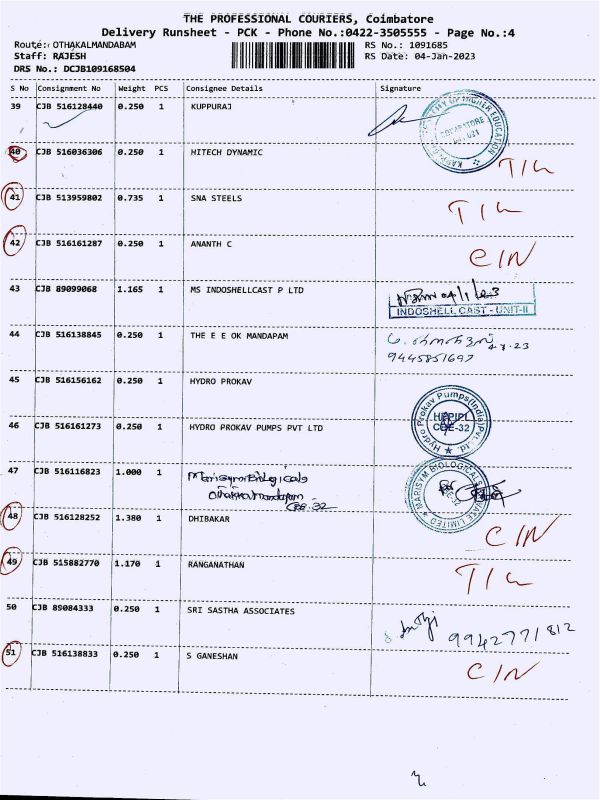 THE PROFESSIONAL COURIERS, Coimbatore
Delivery Runsheet - PCK - Phone No.:0422-3505555 - Page No.:4
Route: OTHAKALMANDABAM RS No.: 1091685
Staff: RAJESH RS Date: 04-Jan-2023
DRS No.: DCJB109168504
S No Consignment No Weight PCS Consignee Details Signature
39 CJB 516128440 0.250 1 KUPPURAJ
40 CJB 516036306 0.250 1 HITECH DYNAMIC T/L
41 CJB 513959802 0.735 1 SNA STEELS T/L
42 CJB 516161287 0.250 1 ANANTH C C/N
43 CJB 89099068 1.165 1 MS INDOSHELLCAST P LTD 04/1/23
INDOSHELL CAST - UNIT-II
44 CJB 516138845 0.250 1 THE E E OK MANDAPAM
9445851697
45 CJB 516156162 0.250 1 HYDRO PROKAV
46 CJB 516161273 0.250 1 HYDRO PROKAV PUMPS PVT LTD Hydro Prokav Pumps(India)Pvt.Ltd. COE-32
47 CJB 516116823 1.000 1 Marisym Biologicals MARISYM BIOLOGICALS PRIVATE LIMITED
Othakkalmandapam
CBE-32
48 CJB 516128252 1.380 1 DHIBAKAR C/N
49 CJB 515882770 1.170 1 RANGANATHAN T/L
50 CJB 89084333 0.250 1 SRI SASTHA ASSOCIATES 9942771812
51 CJB 516138833 0.250 1 S GANESHAN C/N